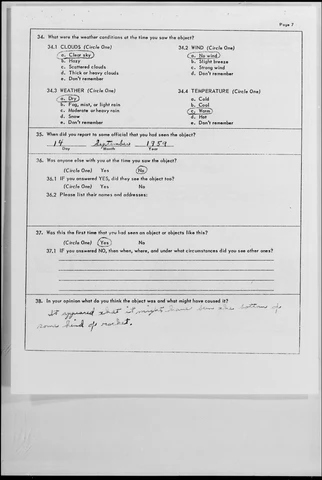 Page 7
34. What were the weather conditions at the time you saw the object?
34.1 CLOUDS (Circle One) 34.2 WIND (Circle One)
a. Clear sky a. No wind
b. Hazy b. Slight breeze
c. Scattered clouds c. Strong wind
d. Thick or heavy clouds d. Don't remember
e. Don't remember
34.3 WEATHER (Circle One) 34.4 TEMPERATURE (Circle One)
a. Dry a. Cold
b. Fog, mist, or light rain b. Cool
c. Moderate or heavy rain c. Warm
d. Snow d. Hot
e. Don't remember e. Don't remember
35. When did you report to some official that you had seen the object?
14 September 1959
Day Month Year
36. Was anyone else with you at the time you saw the object?
(Circle One) Yes No
36.1 IF you answered YES, did they see the object too?
(Circle One) Yes No
36.2 Please list their names and addresses:
37. Was this the first time that you had seen an object or objects like this?
(Circle One) Yes No
37.1 IF you answered NO, then when, where, and under what circumstances did you see other ones?
38. In your opinion what do you think the object was and what might have caused it?
It appeared that it might have been the bottom of
some kind of rocket.